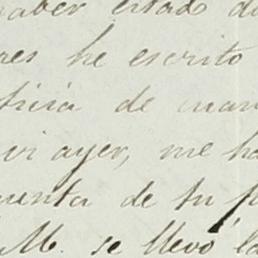 haber estado de
res he escrito
tiria de man
vi ayer, me ha
uenta de tu p
M. se llevó la